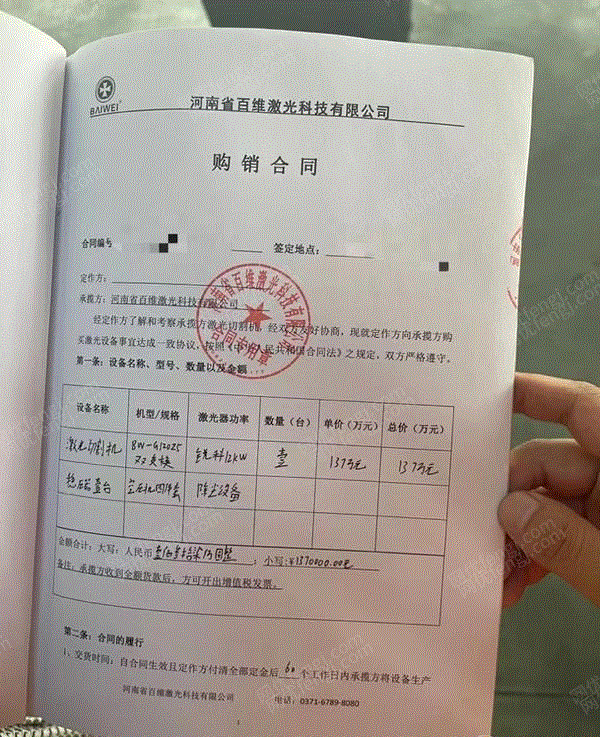 BAIWEI
河南省百维激光科技有限公司
购销合同
合同编号 签定地点：
定作方：
承揽方：河南省百维激光科技有限公司
河南省百维激光科技有限公司
合同专用章
经定作方了解和考察承揽方激光切割机，经双方友好协商，现就定作方向承揽方购
买激光设备事宜达成一致协议，按照《中华人民共和国合同法》之规定，双方严格遵守。
第一条：设备名称、型号、数量以及金额
设备名称 机型/规格 激光器功率 数量（台） 单价（万元） 总价（万元）
激光切割机 BW-G12025 双交换 锐科12KW 壹 137万元 137万元
稳压器壹台 空压机四件套 除尘设备
金额合计：大写：人民币 壹佰叁拾柒万圆整 ；小写：¥1370000.00元
备注：承揽方收到全额货款后，方可开出增值税发票。
第二条：合同的履行
1、交货时间：自合同生效且定作方付清全部定金后 60 个工作日内承揽方将设备生产
河南省百维激光科技有限公司 电话：0371-6789-8080
1